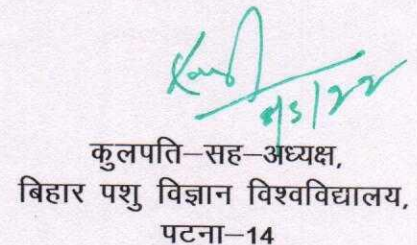 कुलपति–सह–अध्यक्ष,
बिहार पशु विज्ञान विश्वविद्यालय,
पटना–14